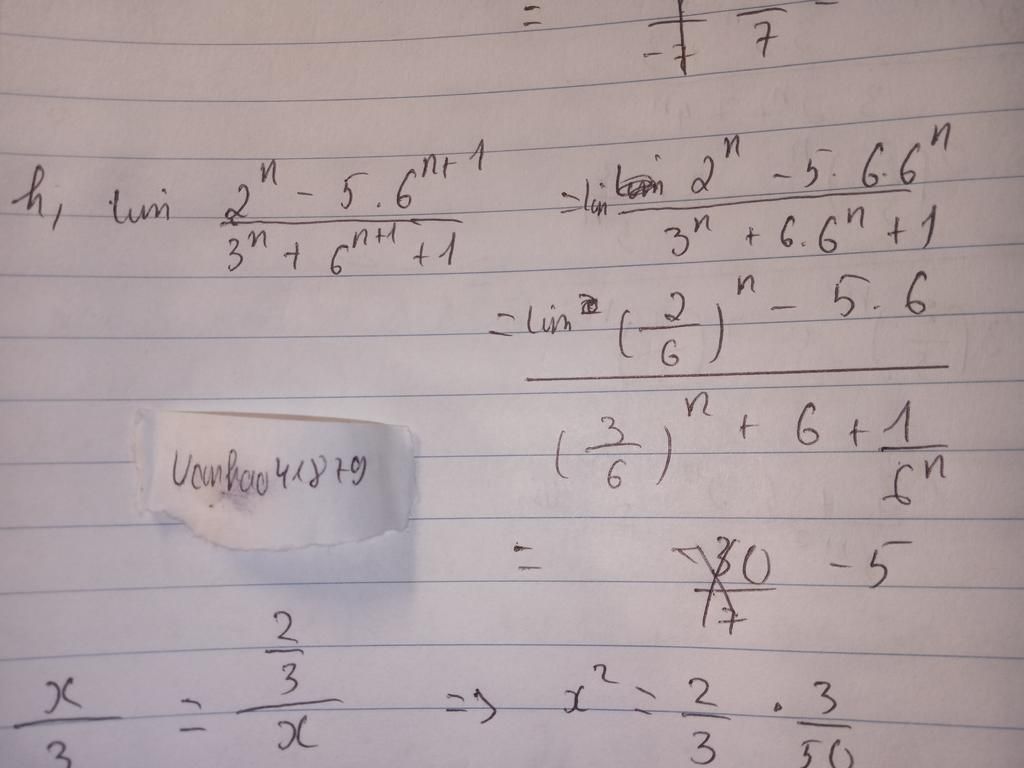 = -7 7
h, lim (2^n - 5.6^{n+1})/(3^n + 6^{n+1} + 1) = lim (2^n - 5.6.6^n)/(3^n + 6.6^n + 1)
= lim ((2/6)^n - 5.6)/((3/6)^n + 6 + 1/6^n)
Vanhao41879
= -5
x/3 = (2/3)/x => x^2 = 2/3 . 3/50